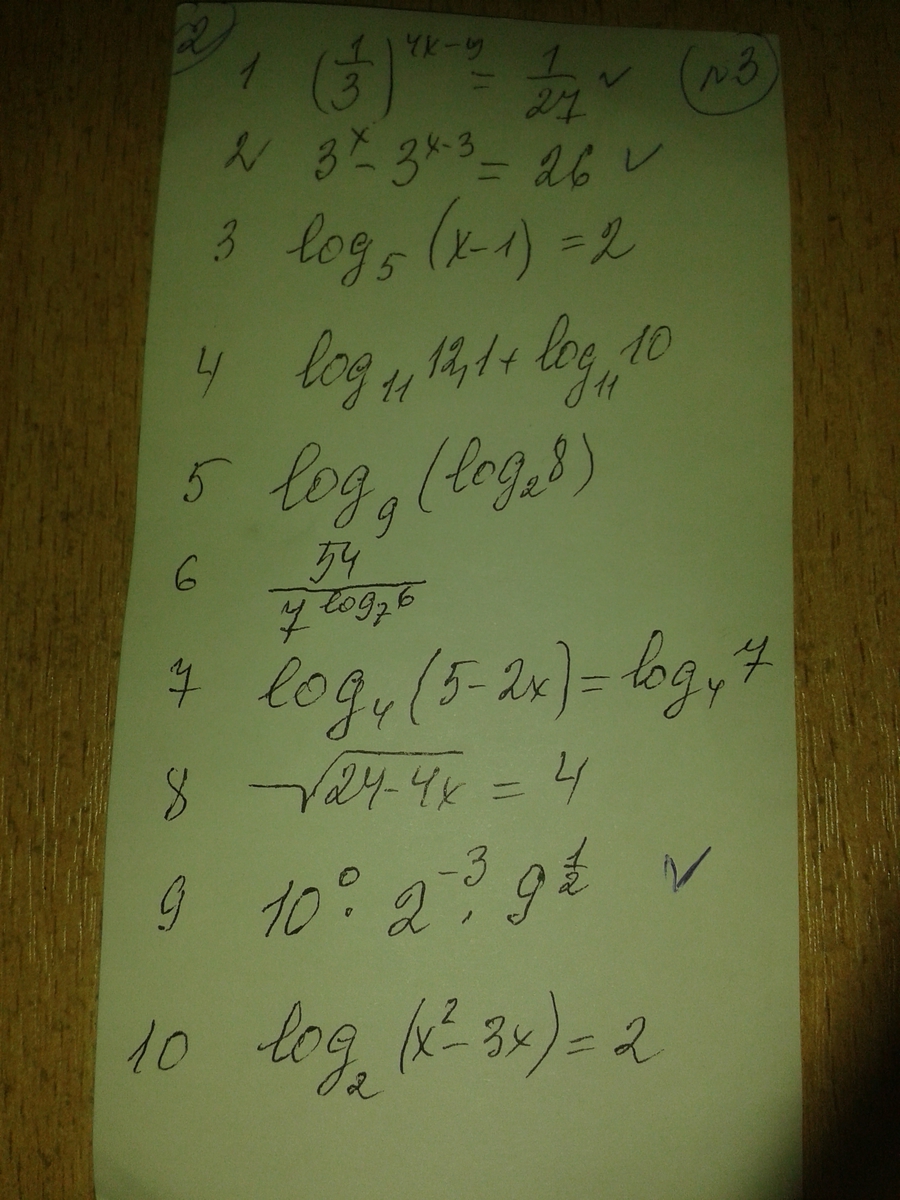 2 №3
1 (1/3)^(4x-9) = 1/27 ✓
2 3^x - 3^(x-3) = 26 ✓
3 log₅(x-1) = 2
4 log₁₁12,1 + log₁₁10
5 log₉(log₂8)
6 54/7^(log₇6)
7 log₄(5-2x) = log₄7
8 √(24-4x) = 4
9 10⁰ · 2⁻³ · 9^(1/2) ✓
10 log₂(x²-3x) = 2